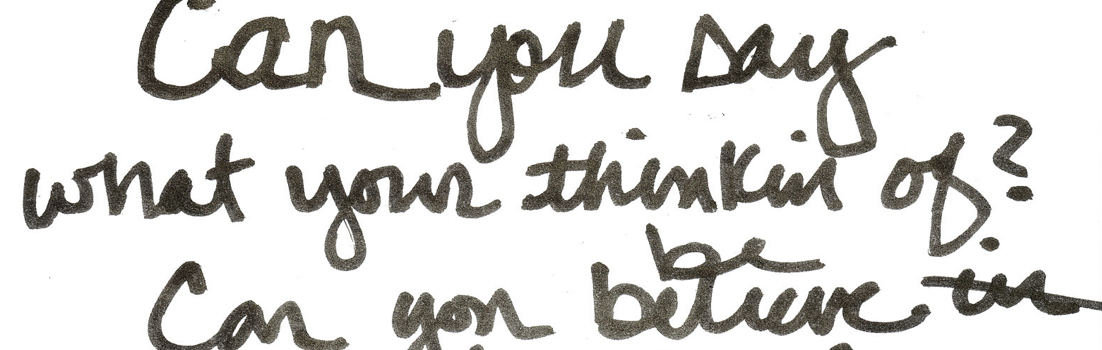 Can you say
what your thinkin of?
be
Can you believe in